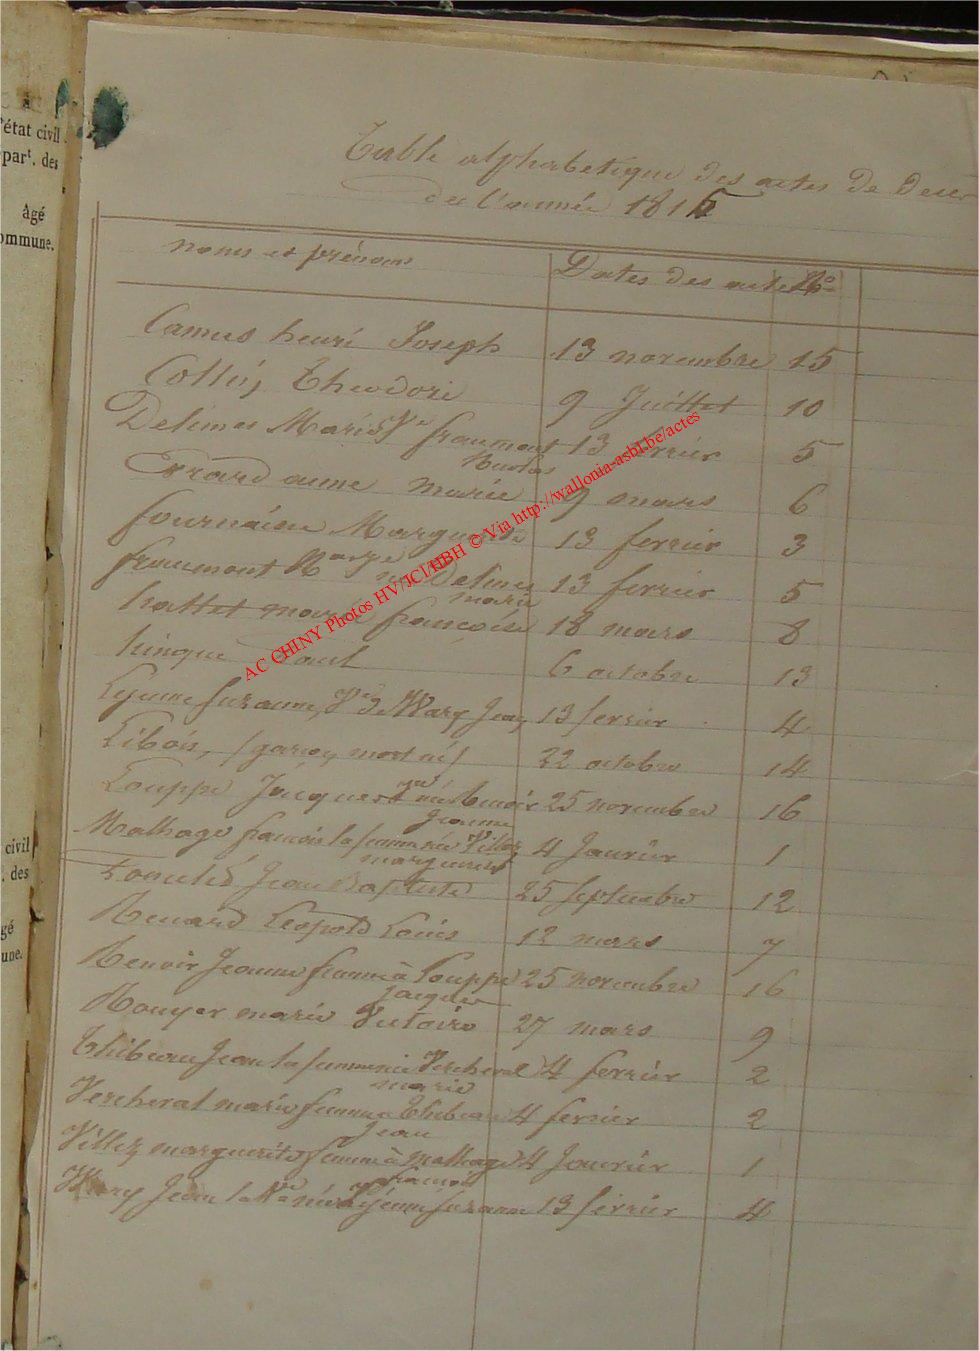 à
l'état civil
part. des
Agé
commune.
Table alphabetique des actes de deces
de l'année 1815
noms et prénoms
Dates des actes
Nos
Camus henri Joseph 13 novembre 15
Collin, Theodore 9 Juillet 10
Delimes Marie Ve fraumont 13 fevrier 5
Nicolas
Evrard anne marie 9 mars 6
fournaine Marguerite 13 fevrier 3
fraumont née Delimes 13 fevrier 5
marie
hallet marie françoise 18 mars 8
hinque Paul 6 octobre 13
Lejeune suzanne, Ve de Wary Jean 13 fevrier 4
Libois, (garçon mort né) 22 octobre 14
Louppe Jacques née Renoir 25 novembre 16
Jeanne
Malhage francois la femme née Villez 4 Janvier 1
marguerite
Jean Baptiste 25 septembre 12
Renard Leopold Louis 12 mars 7
Renoir Jeanne femme à Louppe 25 novembre 16
jacques
Rouyer marie Victoire 27 mars 9
Thibeau Jean la femme née Vercheval 4 fevrier 2
marie
Vercheval marie femme a Thibeau 4 fevrier 2
Jean
Villez marguerite femme à Malhage 4 Janvier 1
francois
Wary Jean la Ve née Lejeune suzanne 13 fevrier 4
civil
. des
gé
une.
AC CHINY Photos HV/JCl/HBH © Via http://wallonia-asbl.be/actes